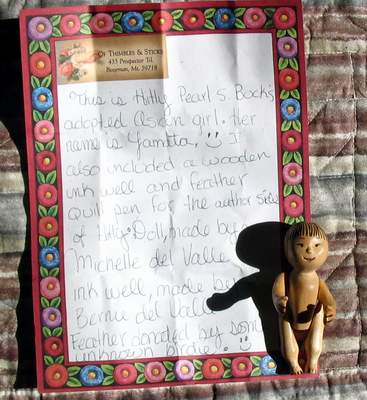 Of Thimbles & Sticks
435 Prospector Trl.
Bozeman, Mt. 59718
This is Hitty Pearl S. Buck's
adopted Asian girl. Her
name is
I
also included a wooden
ink well and feather
quill pen for the author side
of Hitty Doll, made by
Michelle del Valle
ink well, made by
Bernie del Valle
Feather donated by some
unknown birdie.